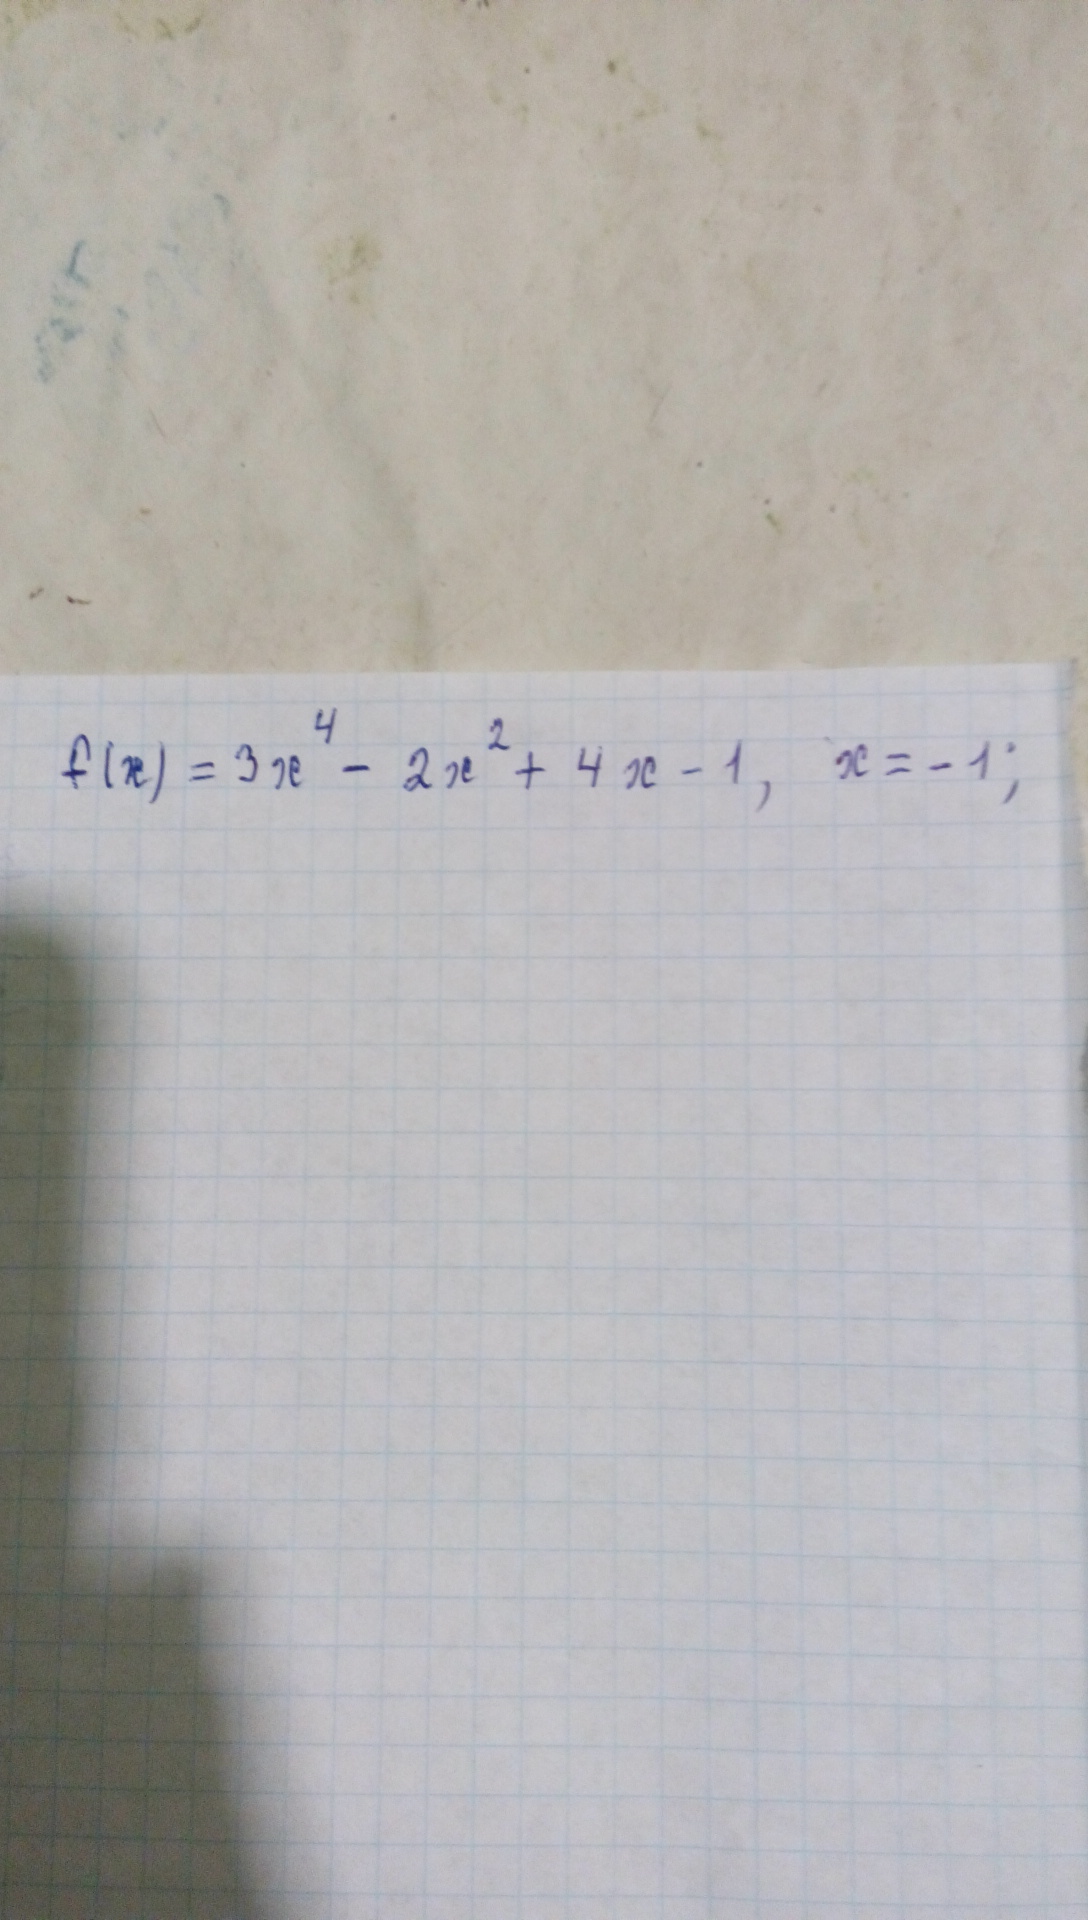 f(x) = 3x⁴ - 2x² + 4x - 1, x = -1;